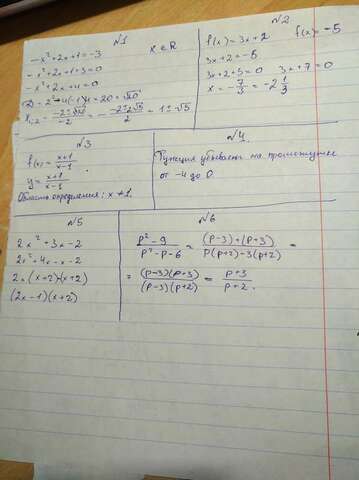 №1
-x² + 2x + 1 = -3    x ∈ R
-x² + 2x + 1 + 3 = 0
-x² + 2x + 4 = 0
x₁,₂ = (-2 ± √20)/(-2) = - (-2 ± 2√5)/2 = 1 ± √5
№2
f(x) = 3x + 2    f(x) = -5
3x + 2 = -5
3x + 2 + 5 = 0    3x + 7 = 0
x = -7/3 = -2 1/3
№3
f(x) = (x+1)/(x-1)
y = (x+1)/(x-1).
Область определения: x ≠ 1.
№4
Функция убывает на промежутке
от -4 до 0.
№5
2x² + 3x - 2
2x² + 4x - x - 2
2x(x+2)-(x+2)
(2x-1)(x+2)
№6
(p² - 9)/(p² - p - 6) = ((p-3)+(p+3))/(p(p+2)-3(p+2)) =
= ((p-3)(p+3))/((p-3)(p+2)) = (p+3)/(p+2).